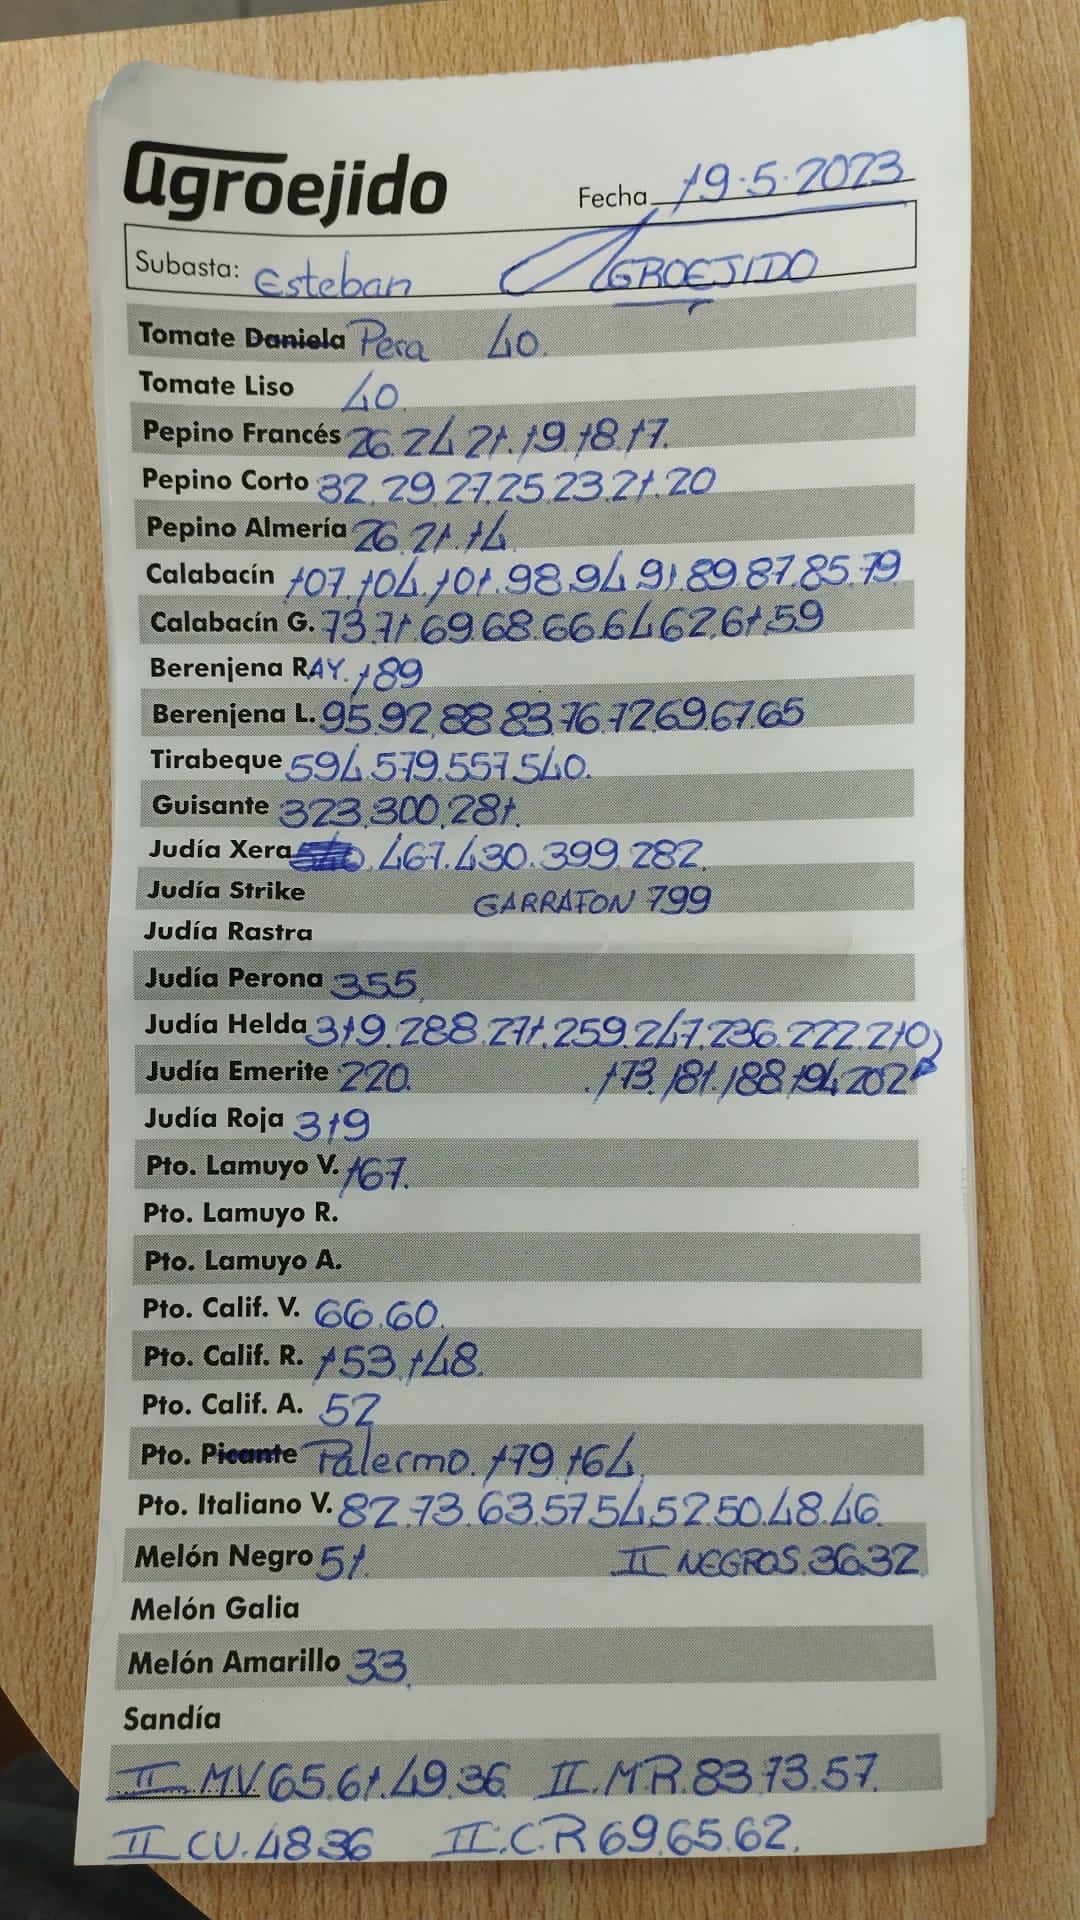 agroejido
Fecha 19.5.2023
Subasta: Esteban AGROEJIDO
Tomate Daniela Pera 40.
Tomate Liso 40.
Pepino Francés 26.24.21.19.18.17.
Pepino Corto 32.29.27.25.23.21.20
Pepino Almería 26.21.14.
Calabacín 107.104.101.98.94.91.89.87.85.79
Calabacín G. 73.71.69.68.66.64.62.61.59
Berenjena RAY. 189
Berenjena L. 95.92.88.83.76.72.69.67.65
Tirabeque 594.579.557.540.
Guisante 323.300.281.
Judía Xera 467.430.399.282.
Judía Strike GARRAFON 799
Judía Rastra
Judía Perona 355.
Judía Helda 319.288.271.259.247.236.222.210
Judía Emerite 220. .173.181.188.194.202
Judía Roja 319
Pto. Lamuyo V. 167.
Pto. Lamuyo R.
Pto. Lamuyo A.
Pto. Calif. V. 66.60.
Pto. Calif. R. 153.148.
Pto. Calif. A. 52
Pto. Picante Palermo. 179.164.
Pto. Italiano V. 82.73.63.57.54.52.50.48.46.
Melón Negro 51. II NEGROS.36.32.
Melón Galia
Melón Amarillo 33.
Sandía
II M.V 65.61.49.36 II.M.R.83.73.57.
II CV.48.36 II.C.R 69.65.62.